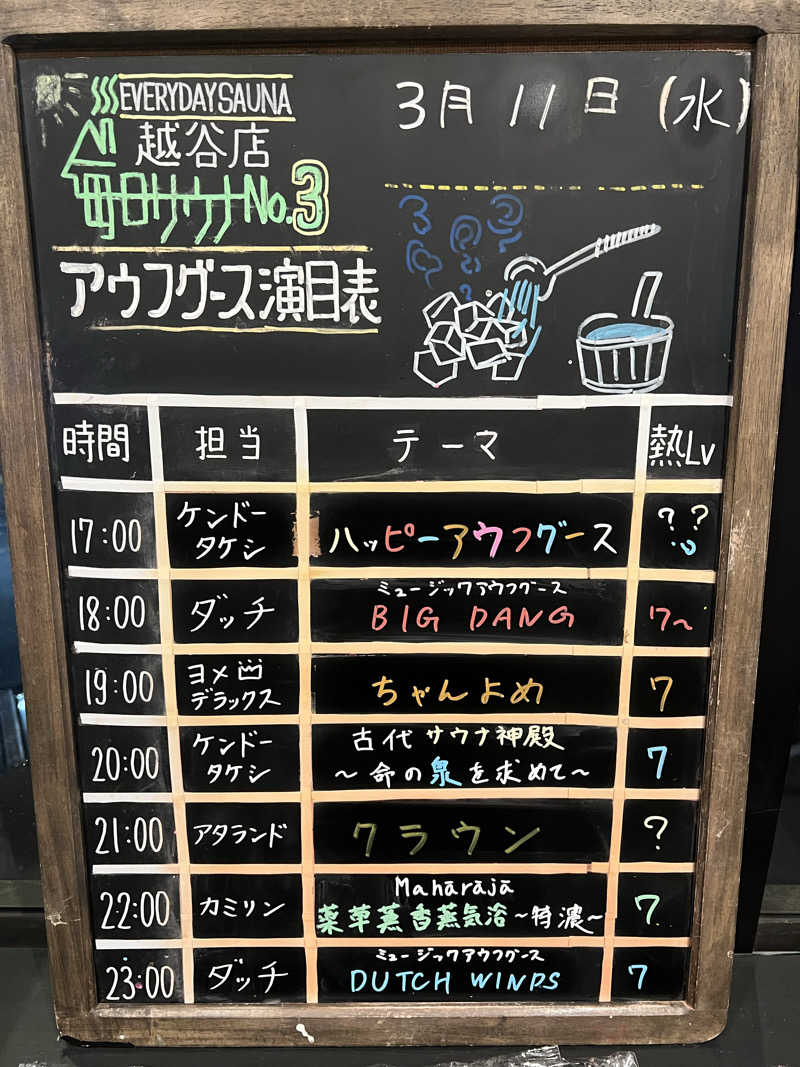 EVERYDAY SAUNA
越谷店
毎日サウナ No.3
アウフグース演目表
3月11日(水)
時間 担当 テーマ 熱Lv
17:00 ケンドータケシ ハッピーアウフグース ??
18:00 ダッチ ミュージックアウフグース BIG DANG 7~
19:00 ヨメデラックス ちゃんよめ 7
20:00 ケンドータケシ 古代サウナ神殿 ~命の泉を求めて~ 7
21:00 アタランド クラウン ?
22:00 カミリン Maharaja 薬草薫香蒸気浴~特濃~ 7
23:00 ダッチ ミュージックアウフグース DUTCH WINDS 7